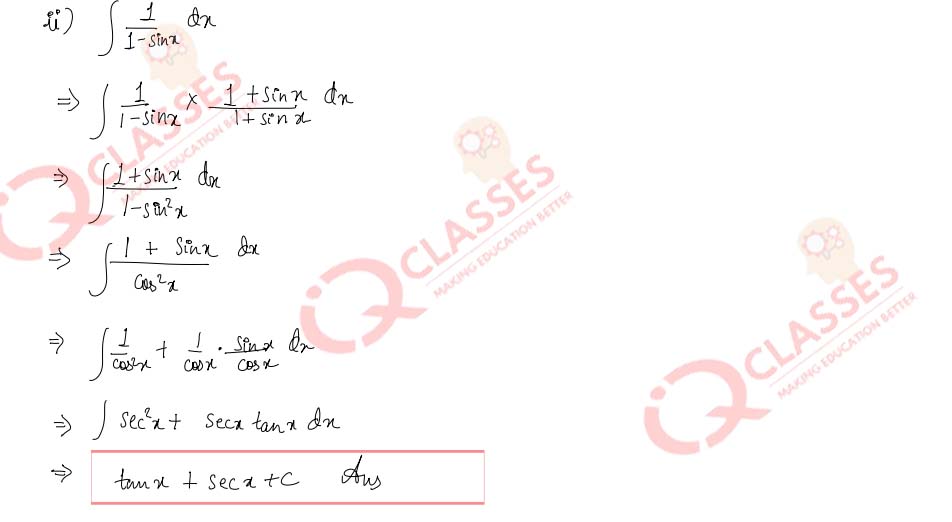 ii) ∫ 1/(1-sinx) dx
⇒ ∫ 1/(1-sinx) × (1+sinx)/(1+sinx) dx
⇒ ∫ (1+sinx)/(1-sin²x) dx
⇒ ∫ (1 + sinx)/cos²x dx
⇒ ∫ 1/cos²x + 1/cosx · sinx/cosx dx
⇒ ∫ sec²x + secx tanx dx
⇒ tanx + secx + C Ans
iQ CLASSES
MAKING EDUCATION BETTER
iQ CLASSES
MAKING EDUCATION BETTER
iQ CLASSES
MAKING EDUCATION BETTER